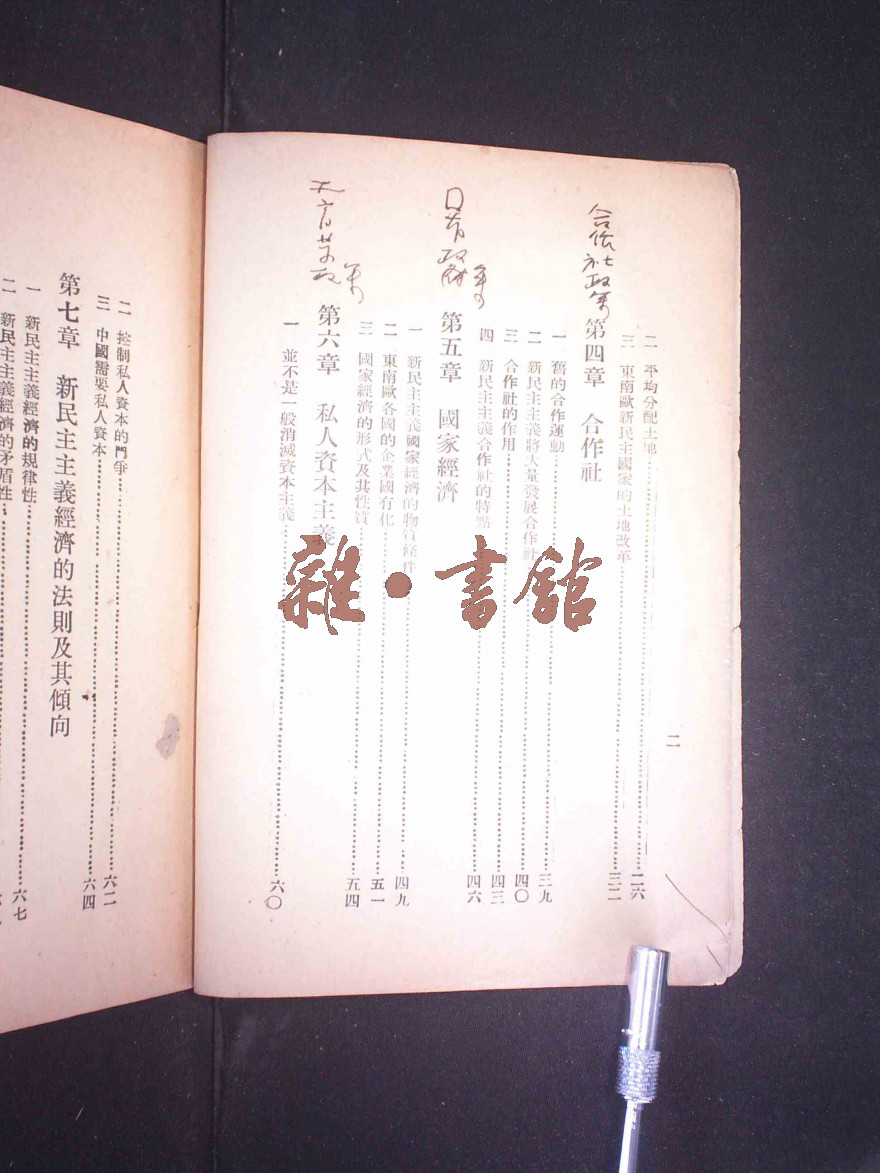 二
二 平均分配土地……二六
三 東南歐新民主國家的土地改革……三二
合作社政策
第四章 合作社
一 舊的合作運動……三九
二 新民主主義將大量發展合作社……四〇
三 合作社的作用……四三
四 新民主主義合作社的特點……四六
第五章 國家經濟
一 新民主主義國家經濟的物質條件……四九
二 東南歐各國的企業國有化……五一
三 國家經濟的形式及其性質……五四
第六章 私人資本主義
一 並不是一般消滅資本主義……六〇
二 控制私人資本的鬥爭……六二
三 中國需要私人資本……六四
第七章 新民主主義經濟的法則及其傾向
一 新民主主義經濟的規律性……六七
二 新民主主義經濟的矛盾性
雜·書館